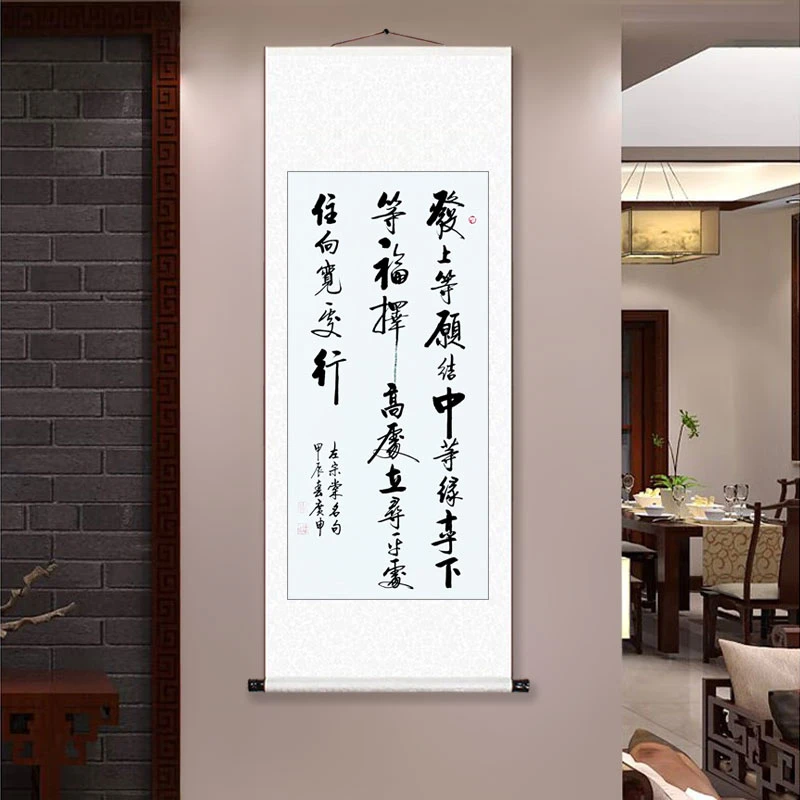 發上等願結中等緣享下
等福擇高處立尋平處
住向寬處行
左宗棠名句
甲辰春庚申